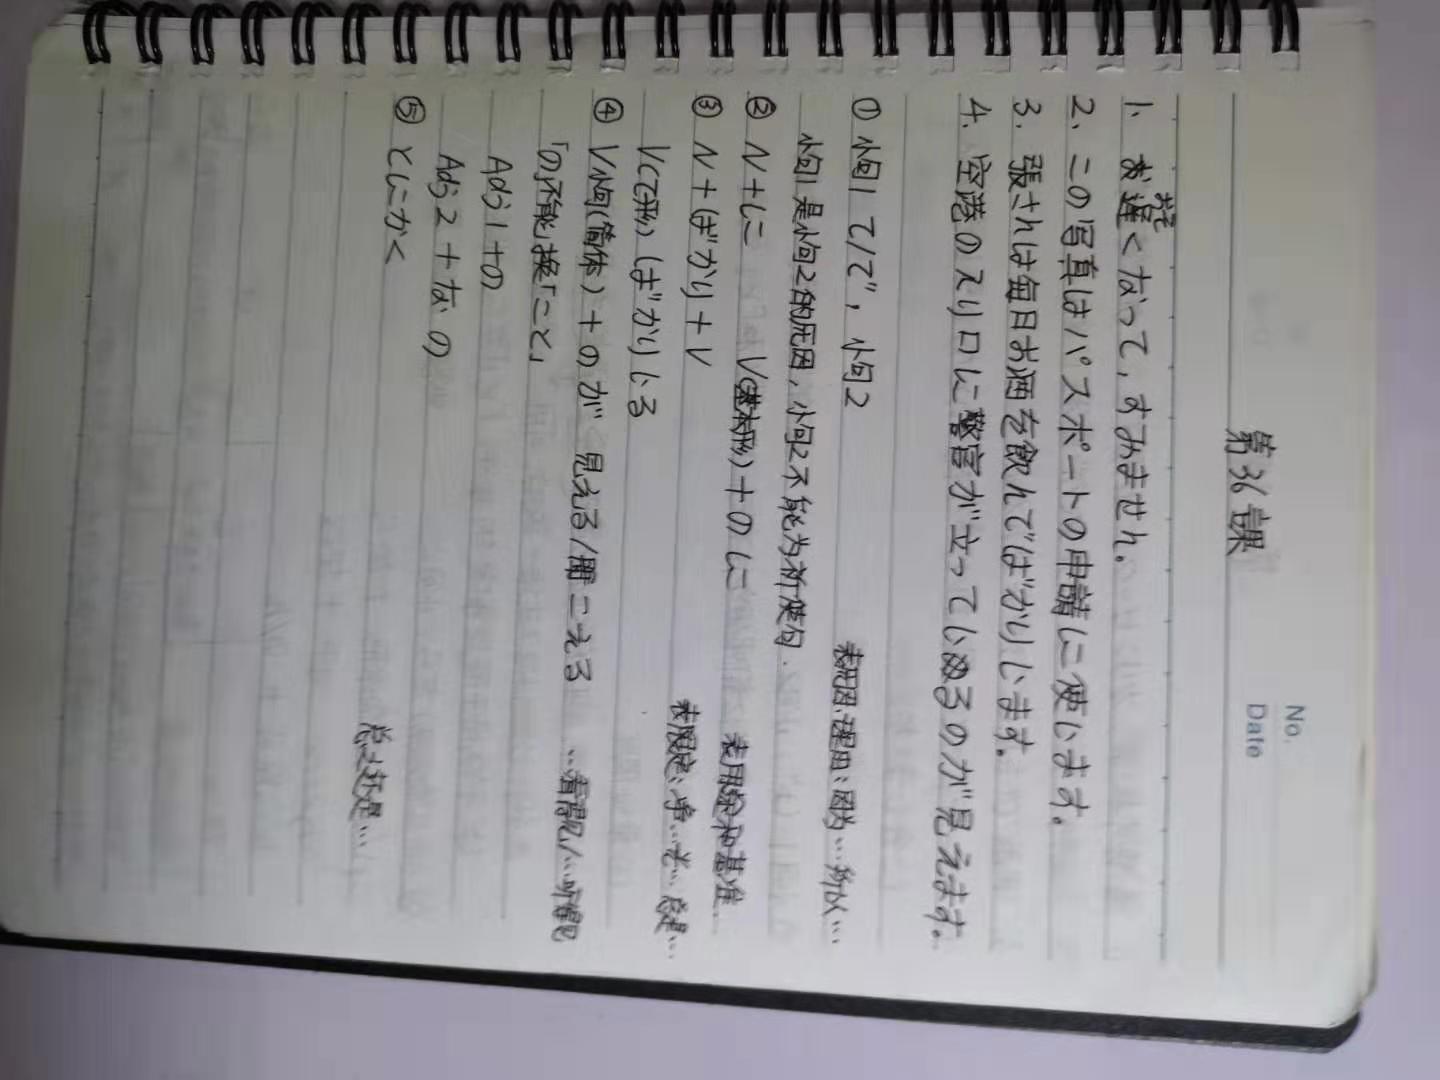 No.
Date
第36課
1、お遅くなって,すみません。
おそ
2、この写真はパスポートの申請に使います。
3、張さんは毎日お酒を飲んでばかりいます。
4、空港の入り口に警官が立っているのが見えます。
① 小句1 て/で,小句2 表原因、理由:因为…所以…
小句1是小句2的原因,小句2不能为祈使句.
② N+に V(基本形)+のに 表用途和基准
③ N+ばかり+V 表限定:净…光…总是…
V(て形)ばかりいる
④ V小句(简体)+のが 見える/聞こえる …看得见/…听得见
「の」不能换「こと」
Adj1+の
Adj2+なの
⑤ とにかく 总之还是…